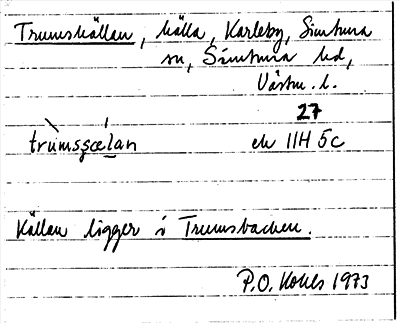 Trumskällan, källa, Karleby, Simtuna
sn, Simtuna hd,
Västm. l.
27
trùmsɕælan ek 11H 5c
Källan ligger i Trumsbacken.
P.O. Kohls 1973